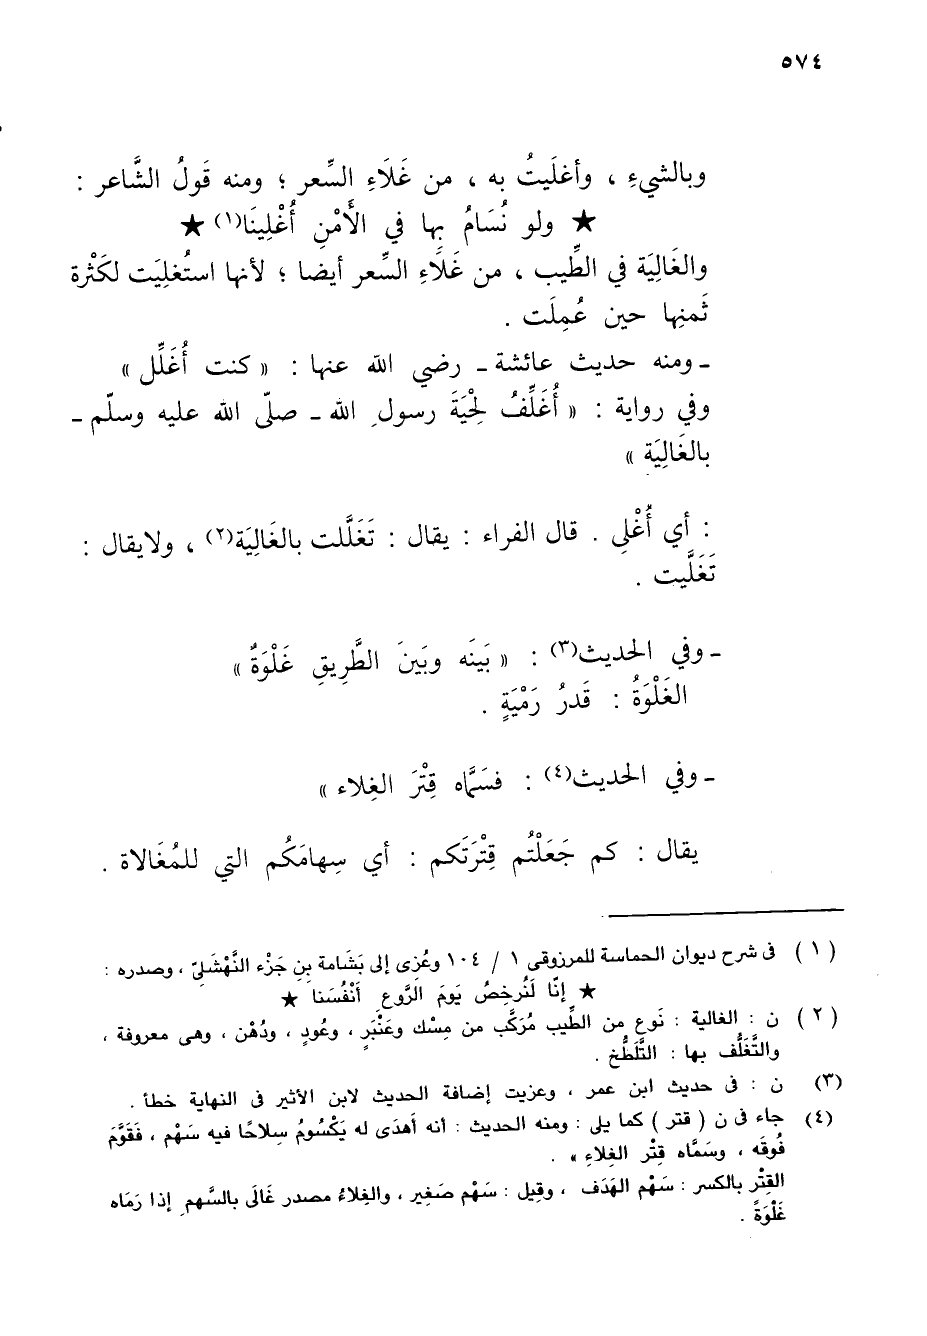 ٥٧٤
وبالشيءِ ، وأغلَيتُ به ، من غَلَاءِ السِّعر ؛ ومنه قَولُ الشَّاعر :
★ ولو نُسَامُ بها في الأَمْنِ أُغْلِينَا(١) ★
والغَالِيَة في الطِّيب ، من غَلَاءِ السِّعر أيضا ؛ لأنها استُغلِيَت لكَثْرة
ثَمنِها حين عُمِلَت .
ـ ومنه حديث عائشة ـ رضي الله عنها : « كنت أُغَلِّل »
وفي رواية : « أُغَلِّفُ لِحْيَةَ رسول الله ـ صلّى الله عليه وسلّم ـ
بالغَالِيَة »
: أي أُغْلِي . قال الفراء : يقال : تَغَلَّلت بالغَالِيَة(٢) ، ولايقال :
تَغَلَّيت .
ـ وفي الحديث(٣) : « بَينَه وبَينَ الطَّرِيقِ غَلْوَةٌ »
الغَلْوَةُ : قَدرُ رَمْيَةٍ .
ـ وفي الحديث(٤) : فسَمَّاه قِتْرَ الغِلاء »
يقال : كم جَعَلْتُم قِتْرَتَكم : أي سِهامَكُم التي للمُغَالاة .
(١) فى شرح ديوان الحماسة للمرزوقى ١ / ١٠٤ وعُزِى إلى بَشَامة بنِ جَزْء النَّهْشَلىّ ، وصدره :
★ إنَّا لَنُرخِصُ يَومَ الرَّوع أَنْفُسَنا ★
(٢) ن : الغالية : نَوع من الطِّيب مُرَكَّب من مِسْك وعَنْبَرٍ ، وعُودٍ ، ودُهْن ، وهى معروفة ،
والتَّغَلُّف بها : التَّلَطُّخ .
(٣) ن : فى حديث ابن عمر ، وعزيت إضافة الحديث لابن الأثير فى النهاية خطأ .
(٤) جاء فى ن ( قتر ) كما يلى : ومنه الحديث : أنه أهدَى له يَكْسُومُ سِلاحًا فيه سَهْم ، فَقَوَّمَ
فُوقَه ، وسَمَّاه قِتْر الغِلاءِ » .
القِتْر بالكسر : سَهْم الهَدَف ، وقِيل : سَهْم صَغِير ، والغِلاءُ مصدر غَالَى بالسَّهم إذا رَمَاه
غَلْوَةً .